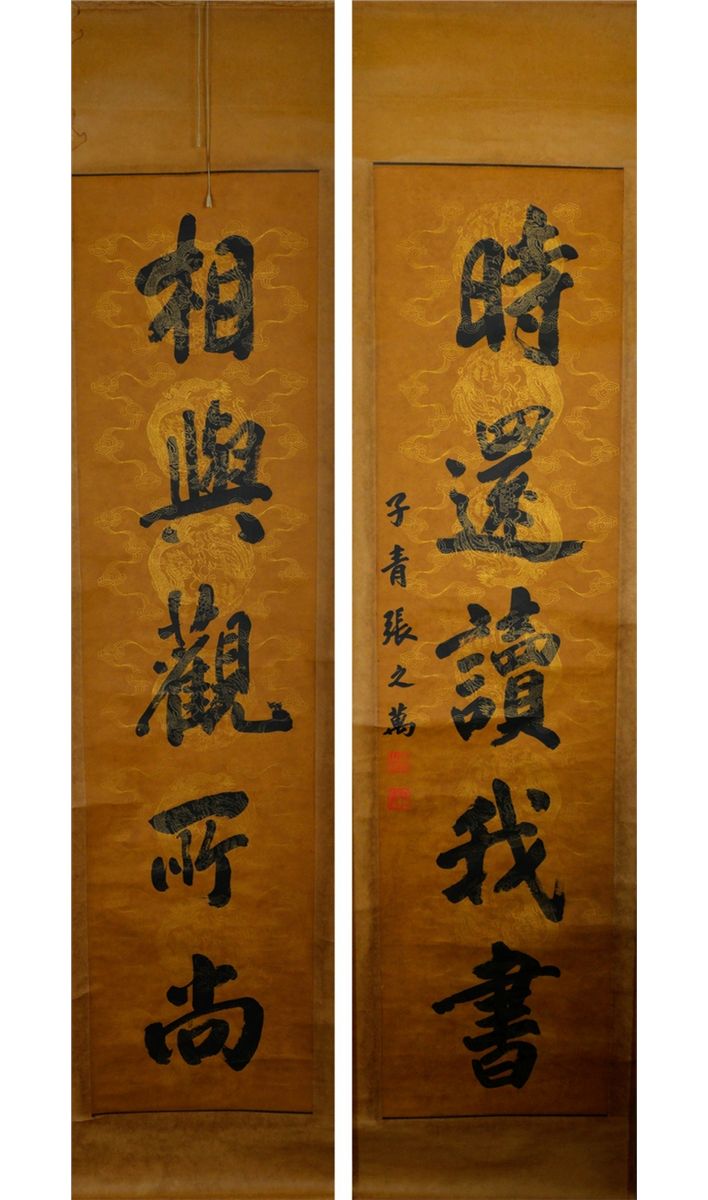 時還讀我書
子青張之萬
相與觀所尚